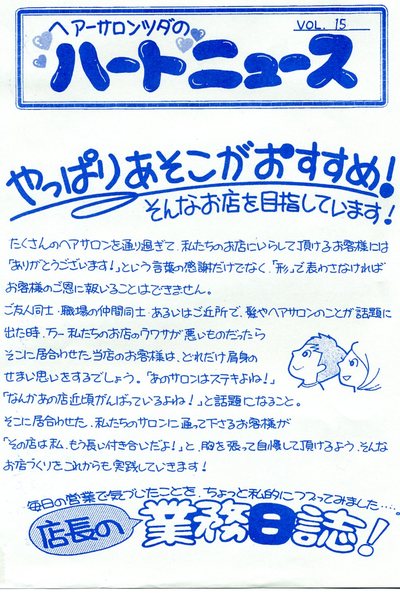 ヘアーサロンツダの
VOL. 15
ハートニュース
やっぱりあそこがおすすめ!
そんなお店を目指しています!
たくさんのヘアサロンを通り過ぎて、私たちのお店にいらして頂けるお客様には
「ありがとうございます!」という言葉の感謝だけでなく「形」で表わさなければ
お客様のご恩に報いることはできません。
ご友人同士・職場の仲間同士・あるいはご近所で、髪やヘアサロンのことが話題に
出た時、万一私たちのお店のウワサが悪いものだったら
そこに居合わせた当店のお客様は、どれだけ肩身の
せまい思いをするでしょう。「あのサロンはステキよね!」
「なんかあの店近頃がんばっているよね!」と話題になること。
そこに居合わせた、私たちのサロンに通って下さるお客様が
「その店は私、もう長い付き合いだよ!」と、胸を張って自慢して頂けるよう、そんな
お店づくりをこれからも実践していきます!
毎日の営業で気づいたことを、ちょっと私的につづってみました…。
店長の業務日誌!